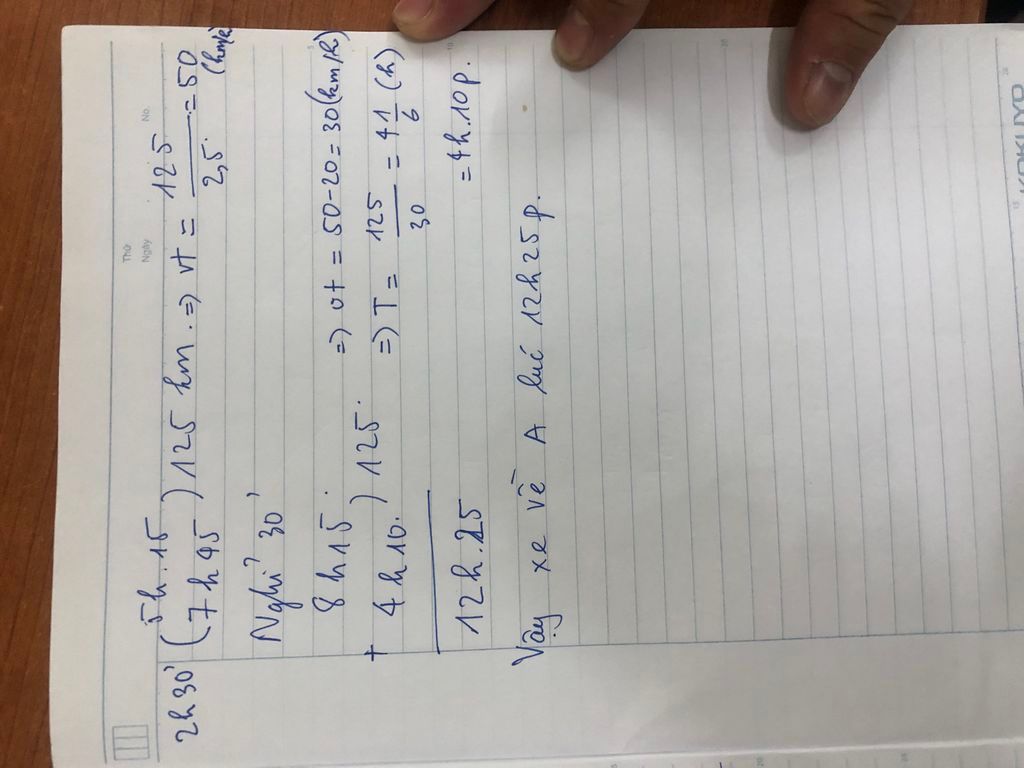 Thứ
Ngày No.
5h.15
2h30' ( 7h45 ) 125 km. => vt = 125/2,5 = 50 (km/h)
Nghỉ 30'
8h15. => vt = 50-20=30(km/h)
+ 4h10. ) 125. => T = 125/30 = 4 1/6 (h)
12h.25 = 4h.10p.
Vậy xe về A lúc 12h25p.
KOKUYO